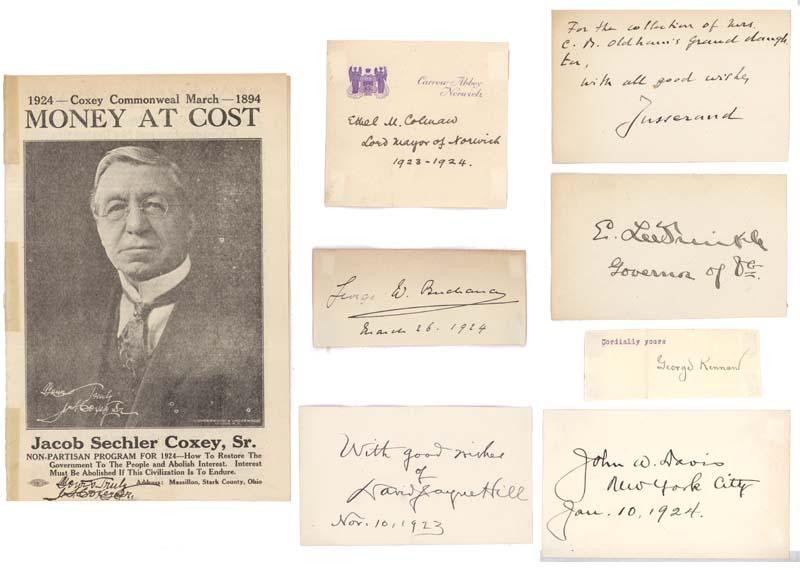 1924 — Coxey Commonweal March — 1894
MONEY AT COST
Yours Truly
J. S. Coxey Sr.
Jacob Sechler Coxey, Sr.
NON-PARTISAN PROGRAM FOR 1924—How To Restore The
Government To The People and Abolish Interest. Interest
Must Be Abolished If This Civilization Is To Endure.
Address: Massillon, Stark County, Ohio
Yours Truly
J. S. Coxey Sr.
Carrow Abbey
Norwich
Ethel M. Colman
Lord Mayor of Norwich
1923-1924.
George W. Buchanan
March 26. 1924
With good wishes
of
David Jayne Hill
Nov. 10, 1923
For the collection of Mrs.
C. D. Oldham's Grand daugh
ter,
with all good wishes
Jusserand
E. Lee Trinkle
Governor of Va.
Cordially yours
George Kennan
John W. Davis
New York City
Jan. 10, 1924.